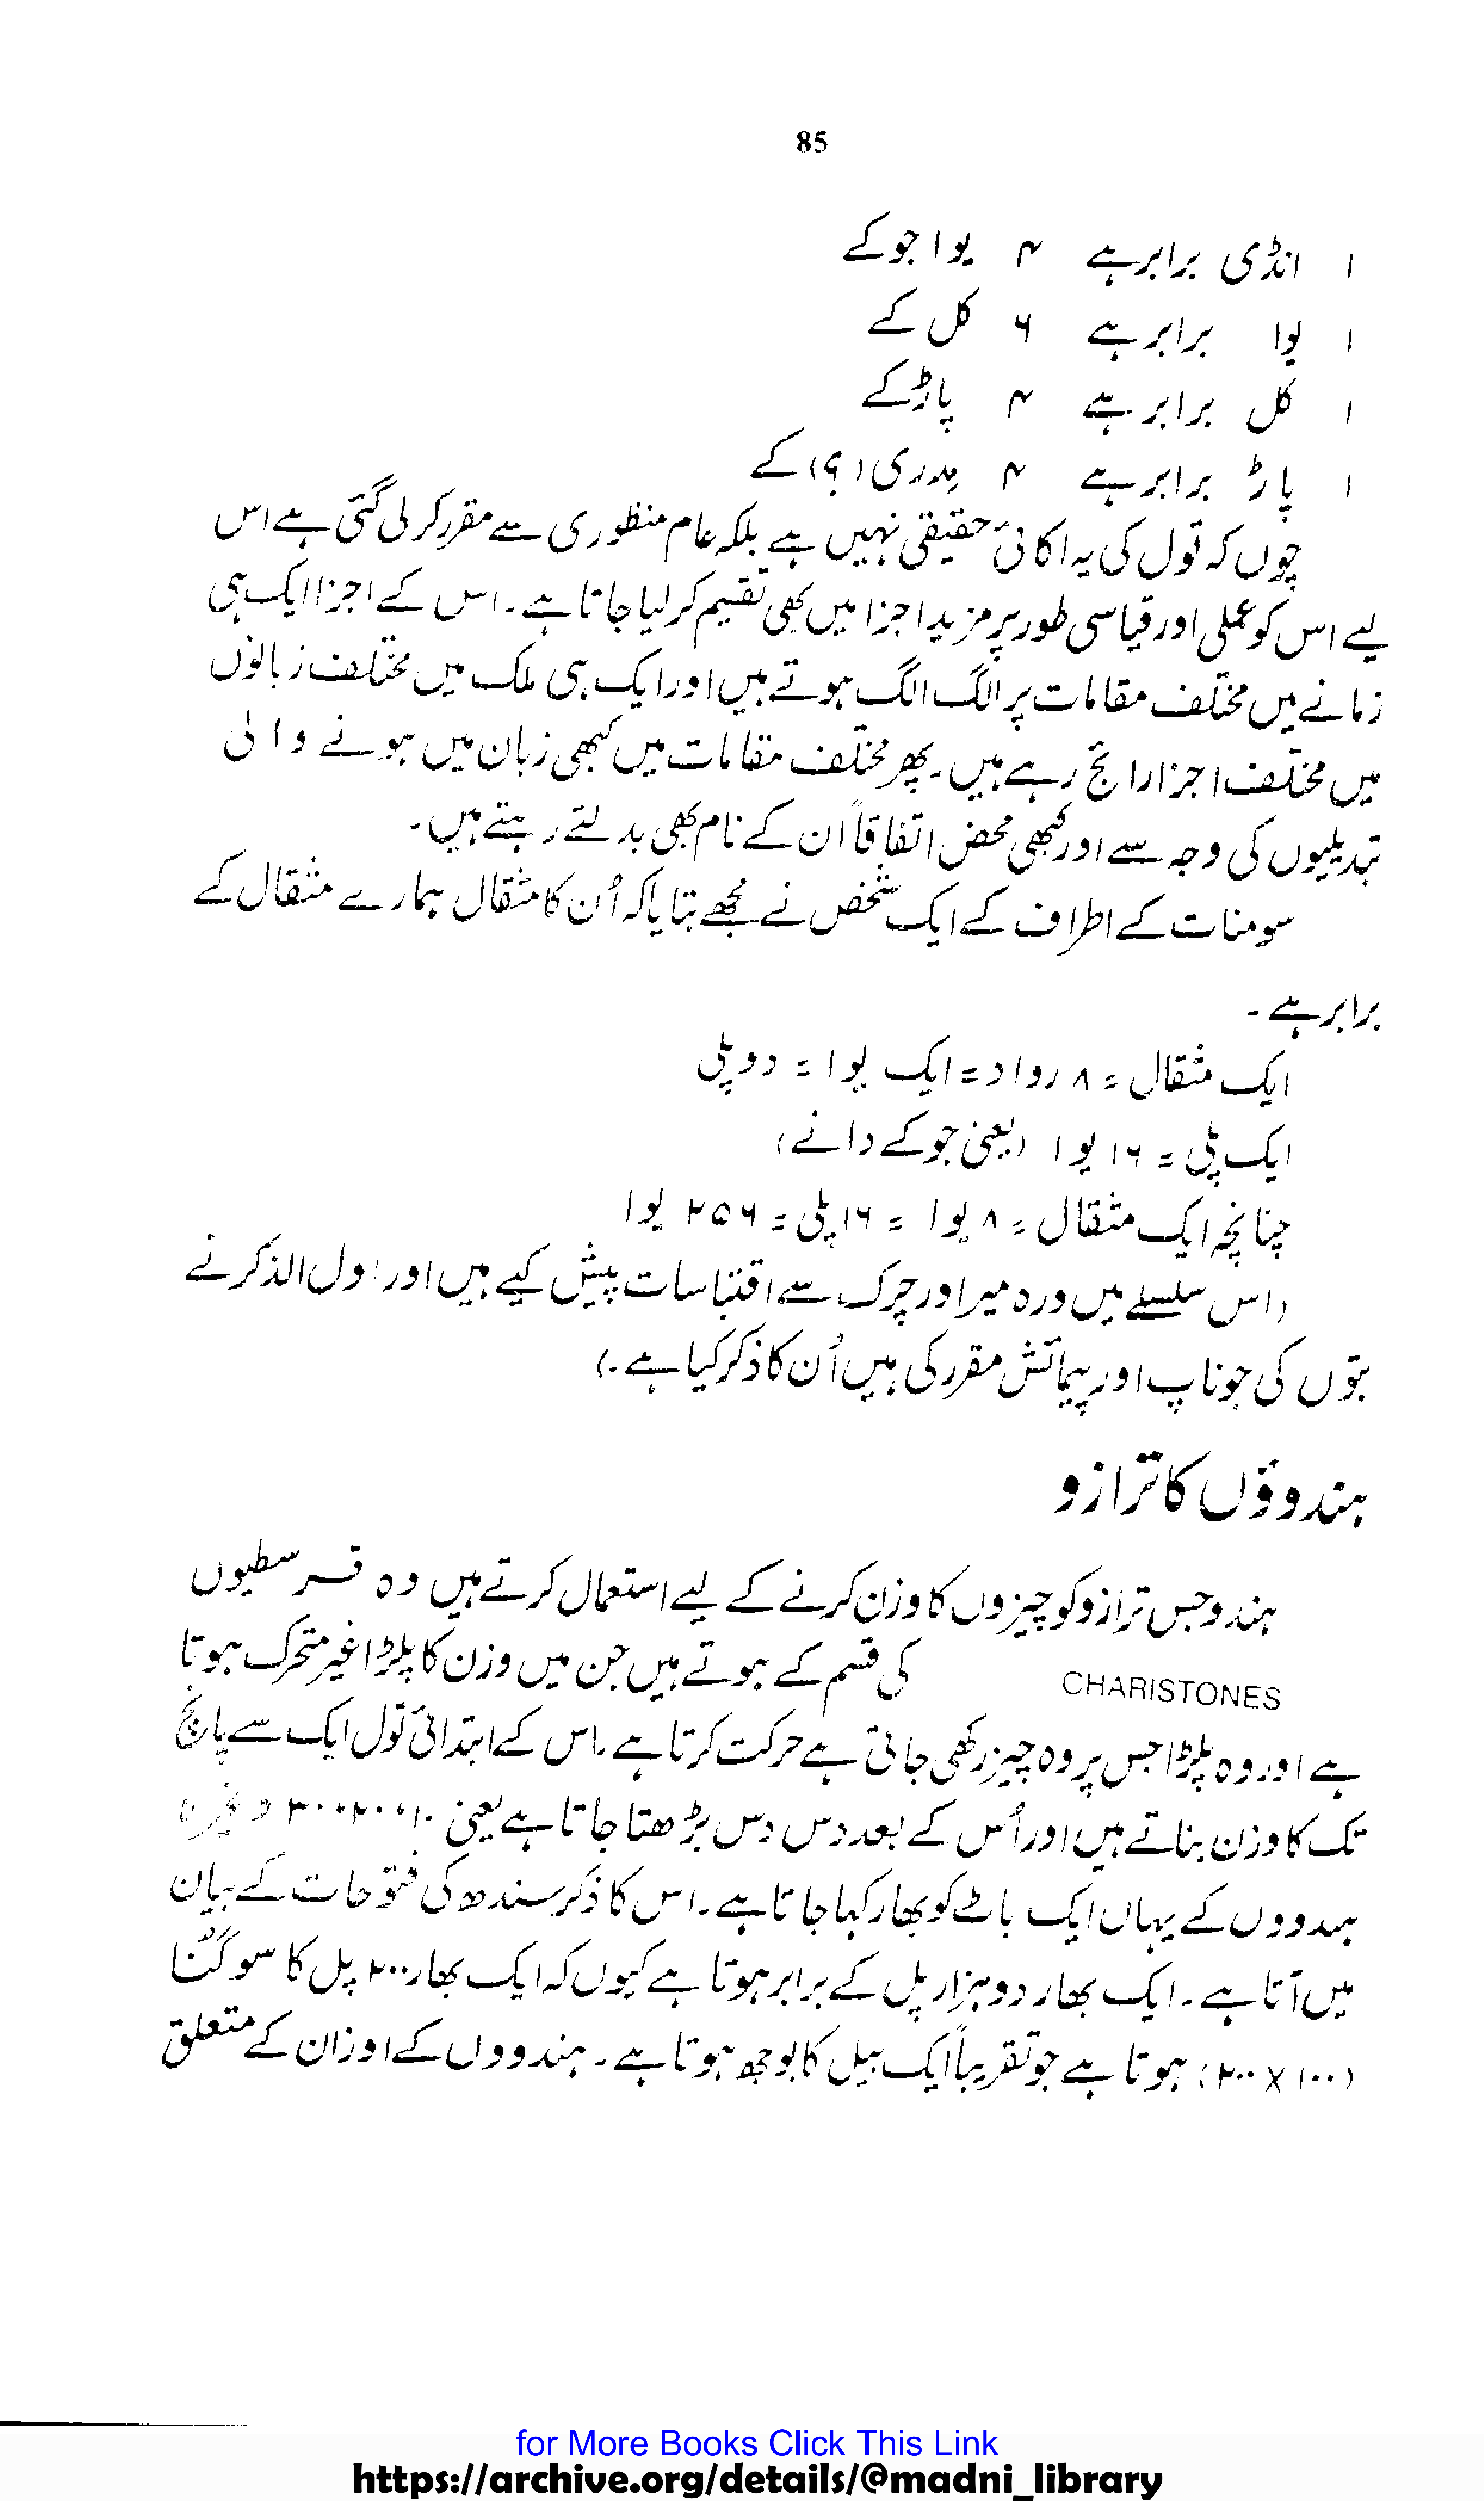 85
۱ انڈی برابر ہے ۴ یوا جو کے
۱ یوا برابر ہے ۶ کل کے
۱ کل برابر ہے ۴ پاڑ کے
۱ پاڑ برابر ہے ۴ مدری (؟) کے
چوں کہ تول کی یہ اکائی حقیقی نہیں ہے بلکہ عام منظوری سے مقرر کر لی گئی ہے اس
لیے اس کو عملی اور قیاسی طور پر مزید اجزا میں بھی تقسیم کر لیا جاتا ہے۔ اس کے اجزا ایک ہی
زمانے میں مختلف مقامات پر الگ الگ ہوتے ہیں اور ایک ہی ملک میں مختلف زبانوں
میں مختلف اجزا رائج رہے ہیں۔ پھر مختلف مقامات میں کبھی زبان میں ہونے والی
تبدیلیوں کی وجہ سے اور کبھی محض اتفاقاً ان کے نام بھی بدلتے رہتے ہیں۔
سومنات کے اطراف کے ایک شخص نے مجھے بتایا کہ اُن کا مثقال ہمارے مثقال کے
برابر ہے۔
ایک مثقال = ۸ رواد = ایک یوا = دو پلی
ایک پلی = ۱۶ یوا (یعنی جو کے دانے)
چنانچہ ایک مثقال = ۸ یوا = ۱۶ پلی = ۲۵۶ یوا
(اس سلسلے میں ورہ میر اور چرک سے اقتباسات پیش کیے ہیں اور اول الذکر نے
بتوں کی جو ناپ اور پیمائش مقرر کی ہیں اُن کا ذکر کیا ہے۔)
ہندوؤں کا ترازو
ہندو جس ترازو کو چیزوں کا وزن کرنے کے لیے استعمال کرتے ہیں وہ قسر سطیوں
CHARISTONES کی قسم کے ہوتے ہیں جن میں وزن کا پلڑا غیر متحرک ہوتا
ہے اور وہ پلڑا جس پر وہ چیز رکھی جاتی ہے حرکت کرتا ہے۔ اس کے ابتدائی تول ایک سے پانچ
تک کا وزن بناتے ہیں اور اُس کے بعد دس دس بڑھتا جاتا ہے یعنی ۱۰، ۲۰، ۳۰ وغیرہ
ہندووں کے یہاں ایک باٹ کو بھار کہا جاتا ہے۔ اس کا ذکر سندھ کی فتوحات کے بیان
میں آتا ہے۔ ایک بھار دو ہزار پل کے برابر ہوتا ہے کیوں کہ ایک بھار ۲۰۰ پل کا سو گُنا
(۱۰۰ X ۲۰۰) ہوتا ہے جو تقریباً ایک بیل کا بوجھ ہوتا ہے۔ ہندووں کے اوزان کے متعلق
for More Books Click This Link
https://archive.org/details/@madni_library